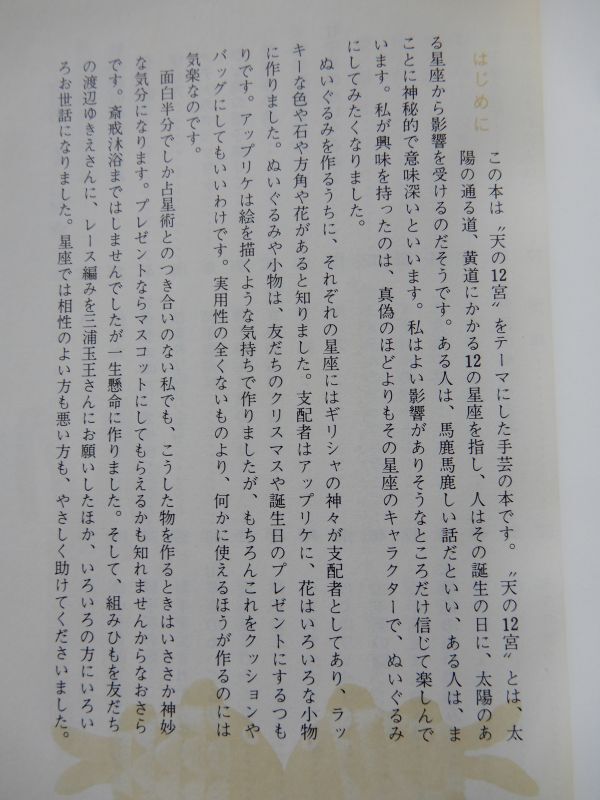 はじめに
この本は〝天の12宮〟をテーマにした手芸の本です。〝天の12宮〟とは、太
陽の通る道、黄道にかかる12の星座を指し、人はその誕生の日に、太陽のあ
る星座から影響を受けるのだそうです。ある人は、馬鹿馬鹿しい話だといい、ある人は、ま
ことに神秘的で意味深いといいます。私はよい影響がありそうなところだけ信じて楽しんで
います。私が興味を持ったのは、真偽のほどよりもその星座のキャラクターで、ぬいぐるみ
にしてみたくなりました。
ぬいぐるみを作るうちに、それぞれの星座にはギリシャの神々が支配者としてあり、ラッ
キーな色や石や方角や花があると知りました。支配者はアップリケに、花はいろいろな小物
に作りました。ぬいぐるみや小物は、友だちのクリスマスや誕生日のプレゼントにするつも
りです。アップリケは絵を描くような気持ちで作りましたが、もちろんこれをクッションや
バッグにしてもいいわけです。実用性の全くないものより、何かに使えるほうが作るのには
気楽なのです。
面白半分でしか占星術とのつき合いのない私でも、こうした物を作るときはいささか神妙
な気分になります。プレゼントならマスコットにしてもらえるかも知れませんからなおさら
です。斎戒沐浴まではしませんでしたが一生懸命に作りました。そして、組みひもを友だち
の渡辺ゆきえさんに、レース編みを三浦玉王さんにお願いしたほか、いろいろの方にいろい
ろお世話になりました。星座では相性のよい方も悪い方も、やさしく助けてくださいました。